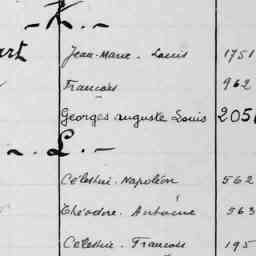 - K. -
art Jean-Marie - Louis 1751
François 962
Georges Auguste Louis 205
- . L . -
Célestin - Napoléon 562
Théodore - Antoine 563
Célestin - François 195